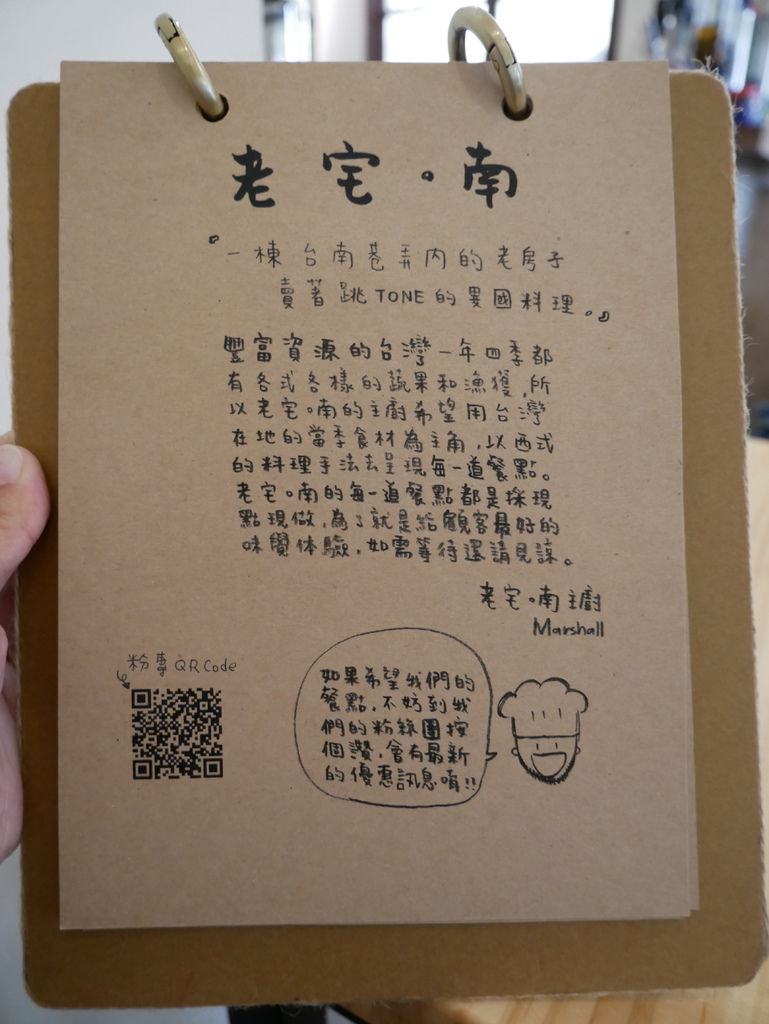 老宅。南
『一棟台南巷弄內的老房子
賣著跳TONE的異國料理。』
豐富資源的台灣一年四季都
有各式各樣的蔬果和漁獲,所
以老宅。南的主廚希望用台灣
在地的當季食材為主角,以西式
的料理手法去呈現每一道餐點。
老宅。南的每一道餐點都是採現
點現做,為了就是給顧客最好的
味覺体驗,如需等待還請見諒。
老宅。南主廚
Marshall
粉專QR Code
如果希望我們的
餐點,不妨到我
們的粉絲團按
個讚,會有最新
的優惠訊息唷!!